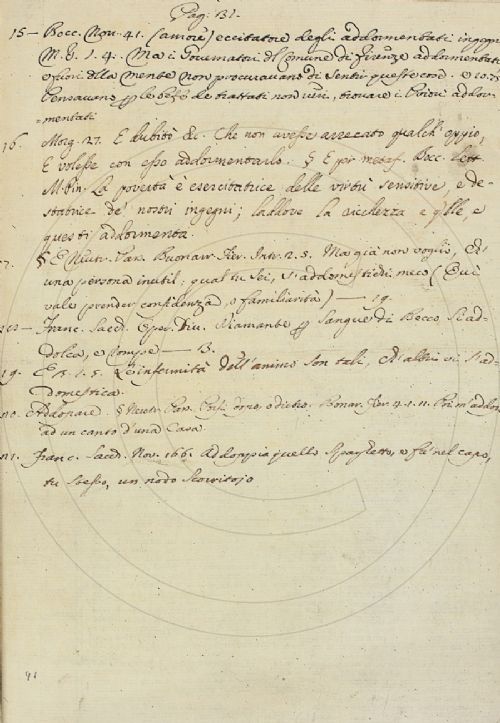 Pag. 131.
15 — Bocc. Nov. 41. (amore) eccitatore degli addormentati ingegni
M. G. 1. 4. Ma i Governatori del Comune di Firenze addormentati
e fuori della mente non procuravano di sentir queste cose. e 10. 75
Pensavano le de trattati non veri, trovare i Priori addor-
=mentati
16. Morg. 27. E dubitò &c. Che non avesse arrecato qualch' oppio,
E volesse con esso addormentarlo. § E per metaf. Bocc. lett
M. Pin. La povertà è esercitatrice delle virtù sensitive, e de-
statrice de' nostri ingegni; laddove la ricchezza e q.lle, e
questi addormenta.
7. § E Neutr. Pas. Buonarr. Fier. Intr. 2. 5. Ma già non voglio, ch'
una persona inutil, qual tu sei, s'addomestichi meco (Qui
vale prender confidenza, o familiarità) — 19.
18 — Franc. Sacch. Op. Div. Diamante sangue di Becco si ad-
dolca, e rompe — 13.
19. E 1. 5. Le infermità dell'animo son tali, ch'altri vi s'ad-
domestica.
20. Addonare. § Neutr. Pas. Bonar. Fier. 4. 1. 11. Poi m'addon
ad un canto d'una Casa
21. Franc. Sacch. Nov. 166. Addoppia quello spaghetto, e fa' nel capo,
tu stesso, un nodo scorritojo